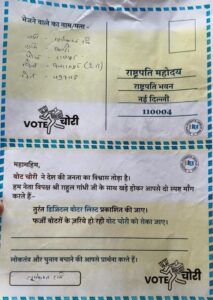 भेजने वाले का नाम/पता -
राष्ट्रपति महोदय
राष्ट्रपति भवन
नई दिल्ली
110004
VOTE चोरी
महामहिम,
वोट चोरी ने देश की जनता का विश्वास तोड़ा है।
हम नेता विपक्ष श्री राहुल गांधी जी के साथ खड़े होकर आपसे दो स्पष्ट माँग
करते हैं -
तुरंत डिजिटल वोटर लिस्ट प्रकाशित की जाए।
फर्जी वोटरों के ज़रिये हो रही वोट चोरी को रोका जाए।
लोकतंत्र और चुनाव बचाने की आपसे प्रार्थना करते हैं।
VOTE चोरी